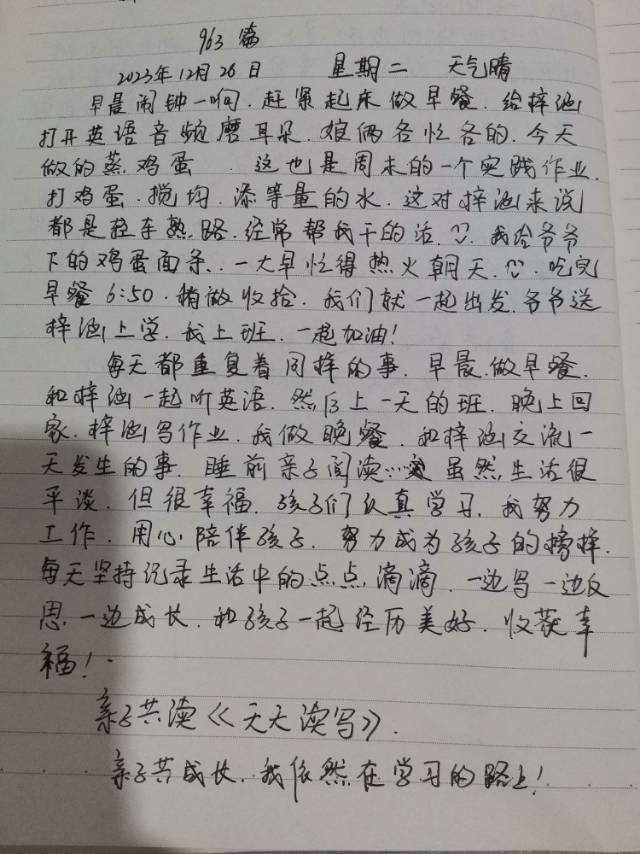 963篇
2023年12月26日 星期二 天气晴
早晨闹钟一响.赶紧起床做早餐.给梓涵
打开英语音频磨耳朵.娘俩各忙各的.今天
做的蒸鸡蛋 .这也是周末的一个实践作业.
打鸡蛋.搅均.添等量的水.这对梓涵来说
都是轻车熟路.经常帮我干的活.我给爷爷
下的鸡蛋面条..一大早忙得热火朝天.吃完
早餐6:50.稍做收拾.我们就一起出发.爷爷送
梓涵上学.我上班.一起加油!
每天都重复着同样的事.早晨.做早餐.
和梓涵一起听英语.然后上一天的班.晚上回
家.梓涵写作业.我做晚餐.和梓涵交流一
天发生的事.睡前亲子阅读…虽然生活很
平淡.但很幸福.孩子们认真学习.我努力
工作.用心陪伴孩子.努力成为孩子的榜样.
每天坚持记录生活中的点点滴滴.一边写一边反
思.一边成长.和孩子一起经历美好.收获幸
福!
亲子共读《天天读写》.
亲子共成长.我依然在学习的路上!